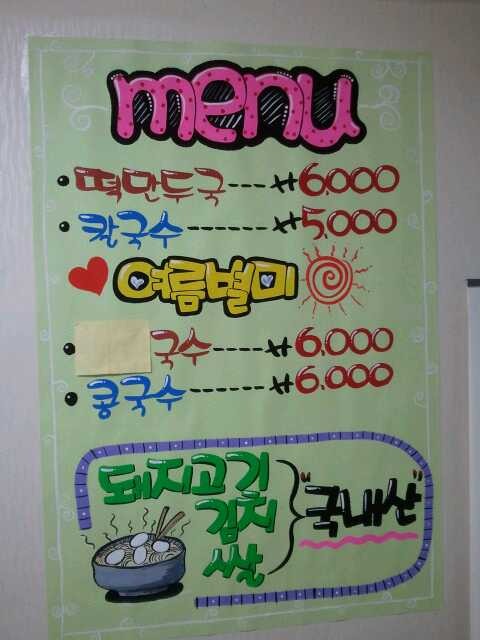 menu
떡만두국 ---- ₩6.000
칼국수 ------ ₩5.000
여름별미
국수 ------ ₩6.000
콩국수 ------ ₩6.000
돼지고기
김치
쌀
"국내산"